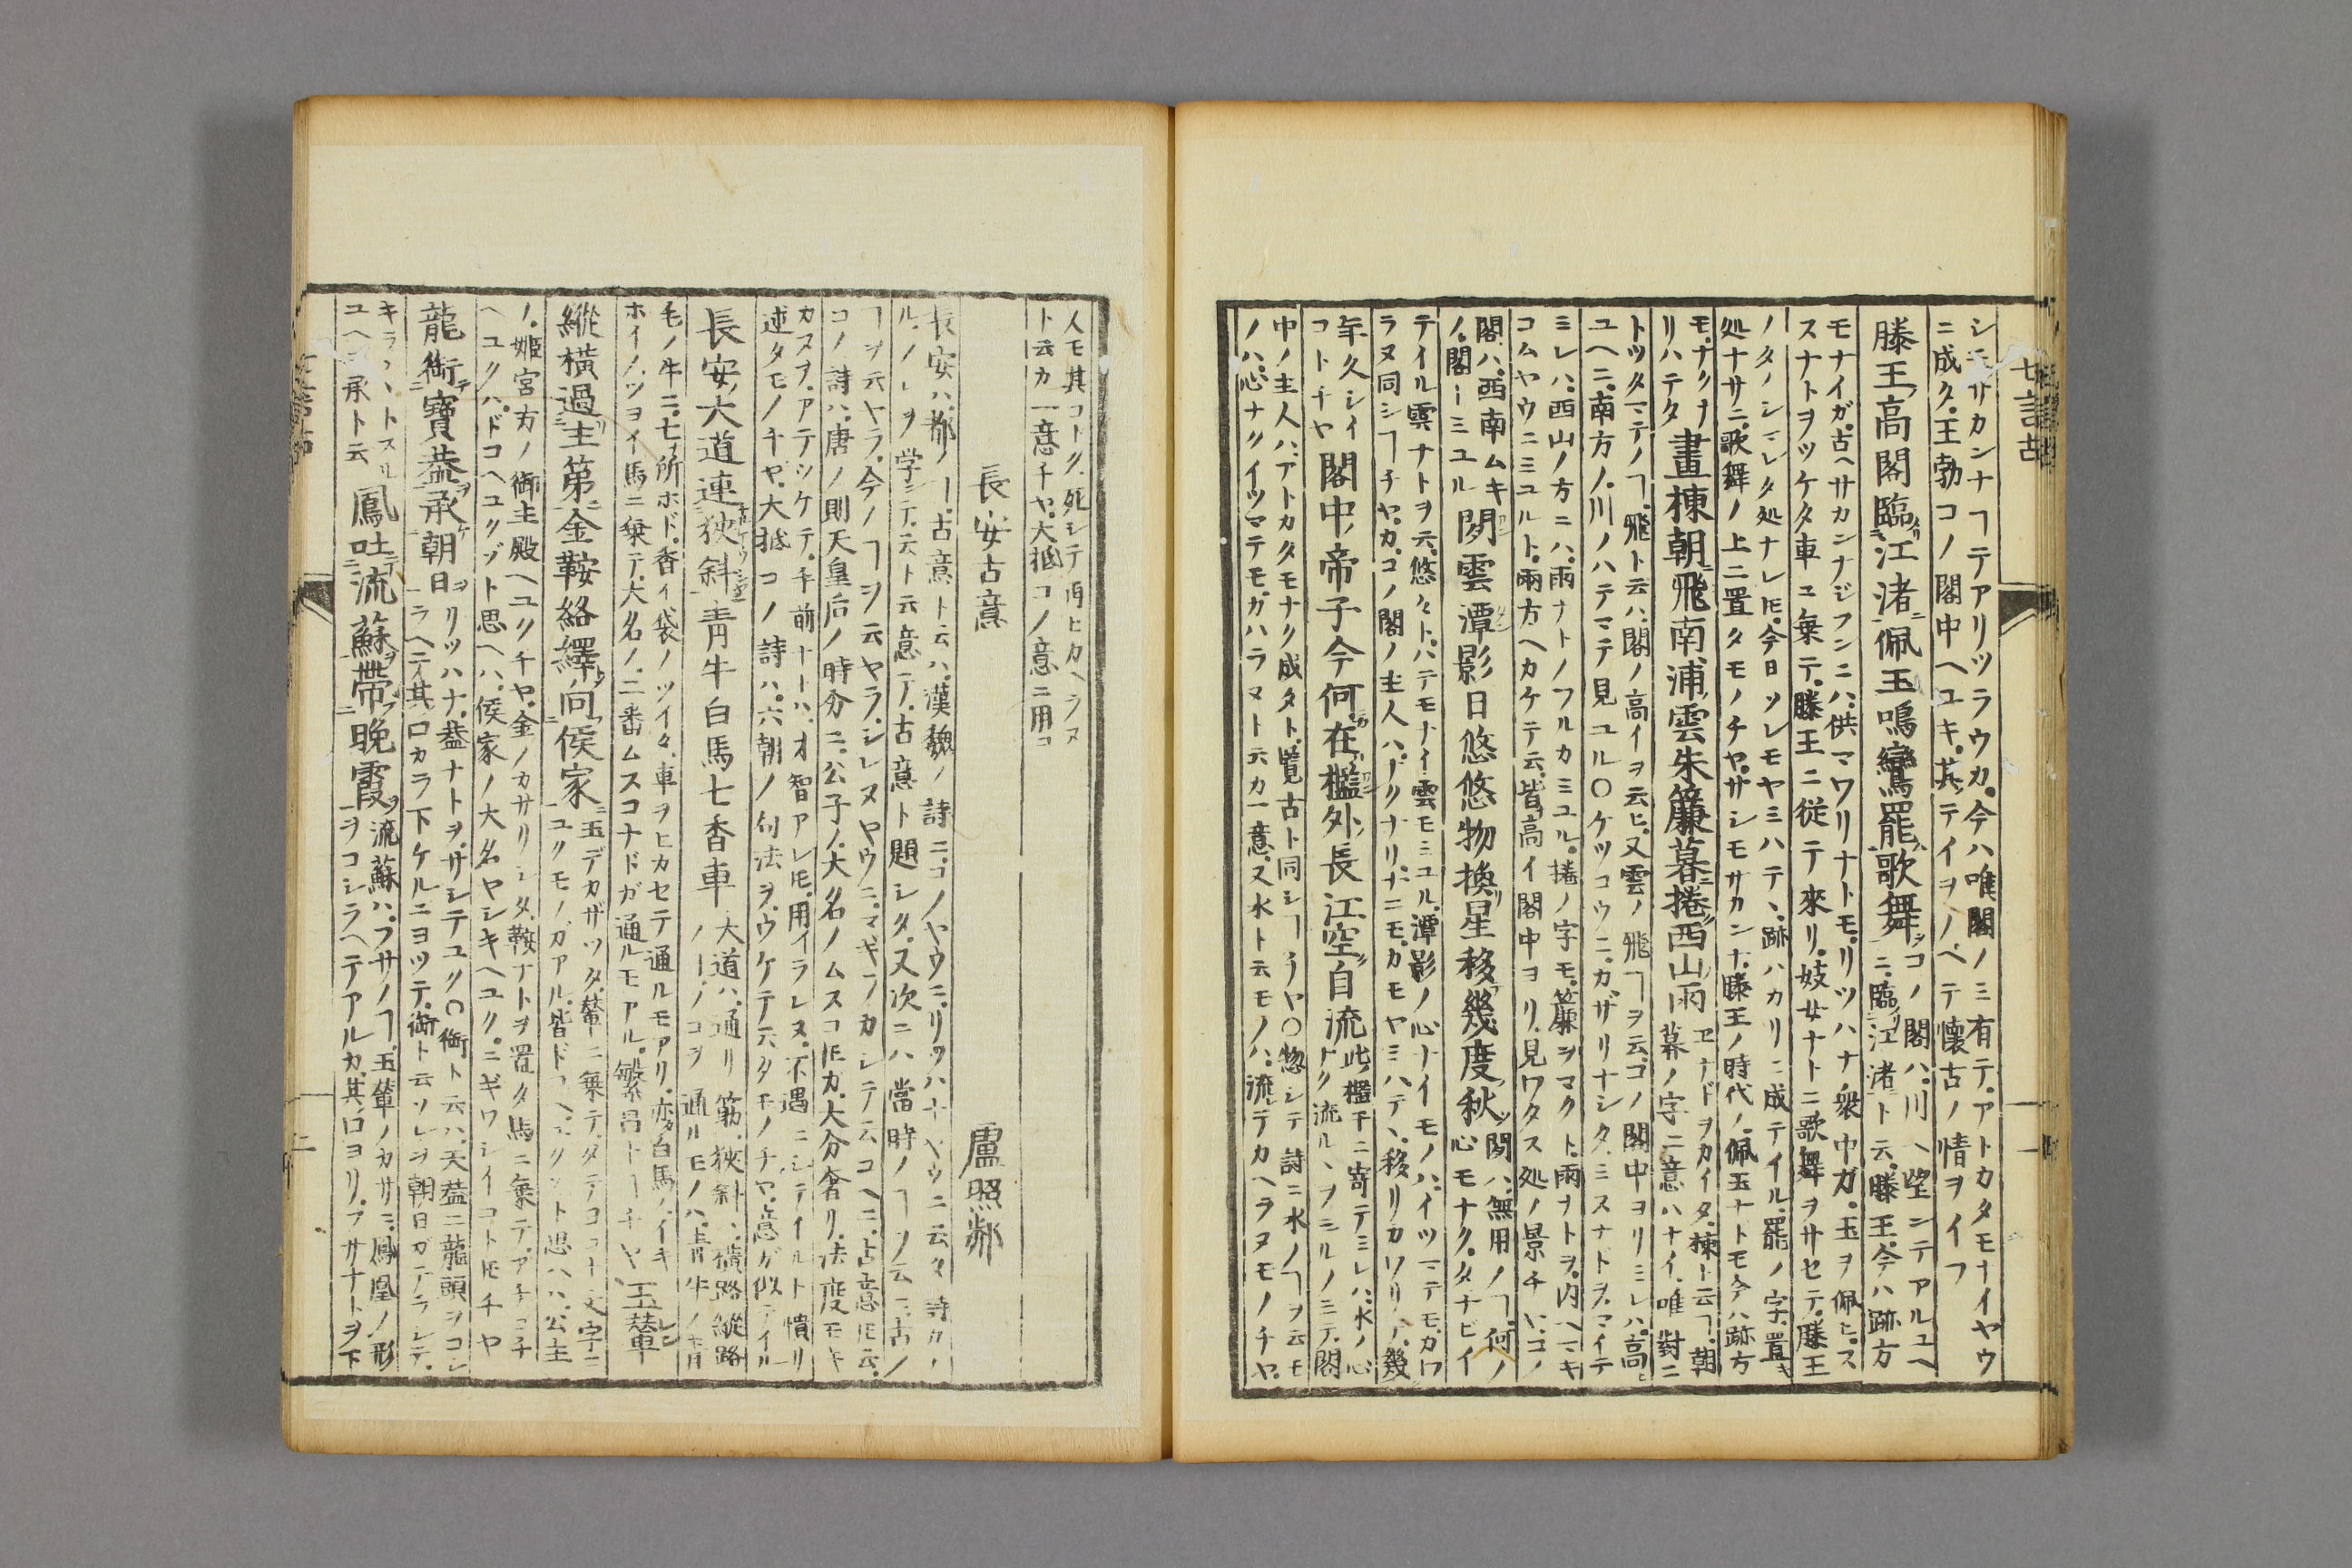 シモサカンナヿテアリツラウカ。今ハ唯閣ノミ有テ。アトカタモナイヤウ
ニ成ク。王勃コノ閣中ヘユキ。其テイヲノベテ懐古ノ情ヲイフ
滕王高閣臨江渚佩玉鳴鸞罷歌舞
コノ閣ハ。川ヘ望ンテアルユヘ
ニ。臨江渚ト云。滕王。今ハ跡方
モナイガ。古ヘサカンナジフンニハ。供マワリナトモ。リツハナ衆中ガ。玉ヲ佩ヒ。ス
スナトヲツケタ車ユ乗テ。滕王ニ従テ來リ。妓女ナトニ歌舞ヲサセテ。滕王
ノタノシマレタ処ナレ𪜈。今日ソレモヤミハテヽ。跡ハカリニ成テイル。罷ノ字。置キ
処ナサニ。歌舞ノ上ニ置タモノチヤ。サシモサカンナ。滕王ノ時代ノ。佩玉ナトモ今ハ跡方
モ。ナクナ
リハテタ
畫棟朝飛南浦雲朱簾暮捲西山雨
ヱナドヲカイタ。棟ト云ヿ。朝
暮ノ字ニ意ハナイ。唯對ニ
トツタマテノヿ。飛ト云ハ。閣ノ高イヲ云ヒ。又雲ノ飛ヿヲ云。コノ閣中ヨリミレハ。高
ユヘニ。南方ノ。川ノハテマテ見ユル〇ケツコウニ。カザリナシタ。ミスナトヲ。マイテ
ミレハ。西山ノ方ニハ。雨ナトノフルカミユル。捲ノ字モ。簾ヲマクト。雨ヲトヲ。内ヘマキ
コムヤウニミユルト。兩方ヘカケテ云。皆高イ閣中ヨリ。見ワタス処ノ景チヤ。コノ
閣ハ。西南ムキ
ノ閣トミユル
閒雲潭影日悠悠物換星移幾度秋
閒ハ。無用ノヿ。何ノ
心モナク。タナビイ
テイル雲ナトヲ云。悠々ト。ハテモナイ雲モミユル。潭影ノ心ナイモノハ。イツマテモ。カワ
ラヌ同シヿチヤ。カ。コノ閣ノ主人ハ。ドクナリ。ナニモ。カモヤミハテヽ。移リカワリテ。幾
年久シイ
コトチヤ
閣中帝子今何在檻外長江空自流
此檻干ニ寄テミレハ。水ノ心
ナク流ルヽヲミルノミテ。閣
中ノ主人ハ。アトカタモナク成タト。覽古ト同シヿチヤ〇惣シテ詩ニ水ノヿヲ云モ
ノハ。心ナクイツマテモ。カハラヌト云カ一意。又水ト云モノハ。流テカヘラヌモノチヤ。
人モ其コトク。死シテ再ヒカヘラヌ
ト云カ一意チヤ。大抵コノ意ニ用コ
長安古意
盧照鄰
長安ハ。都ノヿ。古意ト云ハ。漢魏ノ詩ニ。コノヤウニ。リツハナヤウニ云タ詩カ
ル。ソレヲ学テ云ト云意テ。古意ト題シタ。又次ニハ當時ノヿヲ云ニ。古ノ
ヿヲ云ヤラ。今ノヿヲ云ヤラ。シレヌヤウニ。マギラカシテ云コヘニ。古意𪜈云。
コノ詩ハ。唐ノ則天皇后ノ時分ニ。公子ノ。大名ノムスコ𪜈カ。大分奢リ。法度モキ
カヌヲ。アテツケテ。手前ナトハ。才智アレ𪜈。用イラレヌ。不遇ニシテイルト憤リ
述タモノチヤ。大抵コノ詩ハ。六朝ノ句法ヲ。ウケテ云タモノチヤ。意ガ似テイル
長安大道連狹斜青牛白馬七香車
大道ハ。通リ筋。狹斜ハ。横路縱路
ノヿ。ノコラ通ルモノハ。青牛ノ青
毛ノ牛ニ。七所ホド。香イ袋ノツイタ。車ヲヒカセテ通ルモアリ。亦白馬ノイキ
ホイノツヨイ馬ニ乗テ。大名ノ。二番ムスコナドガ通ルモアル。繁昌トヿチヤ
玉輦
縱横過主第金鞍絡繹向侯家
玉デカザツタ。輦ニ乗テ。タテヨコト文字ニ
ユクモノガアル。皆ドコヘユクゾト思ヘハ。公主
ノ。姫宮方ノ御主殿ヘユクチヤ。金ノカサリシタ。鞍ナトヲ置タ馬ニ乗テ。アチコチ
ヘユクハ。ドコヘユクゾト思ヘハ。侯家ノ大名ヤシキヘユク。ニギワシイコト𪜈チヤ
龍銜寶葢承朝日
リツハナ。葢ナトヲ。サシテユク〇銜ト云ハ。天葢ニ龍頭ヲコシ
ラヘテ。其口カラ下ケルニヨツテ。銜ト云。ソレヲ朝日ガテラシテ。
キラヽトスル
ユヘヲ承ト云
鳳吐流蘇帶晚霞
流蘇ハ。フサノヿ。玉輦ノカサニ。鳳凰ノ形
ヲコシラヘテアルカ。其口ヨリ。フサナトヲ下